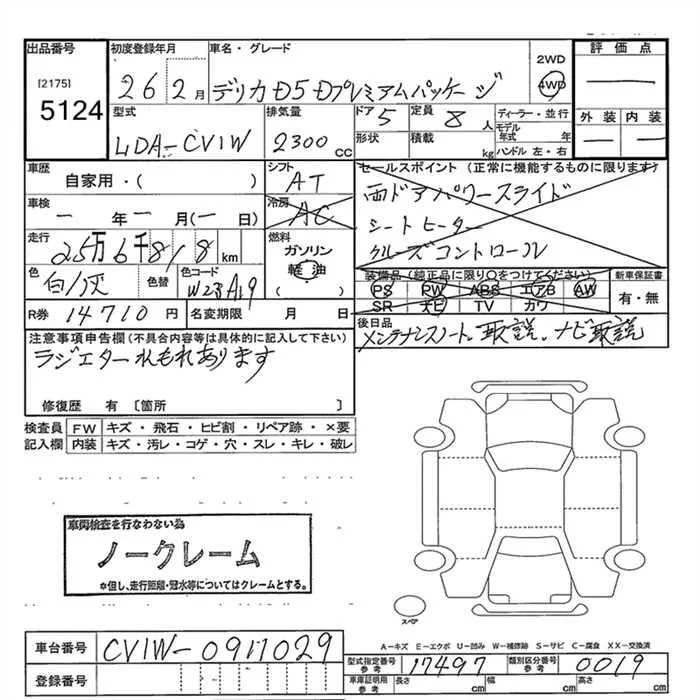 出品番号
[2175]
5124
初度登録年月
26 2月
車名・グレード
デリカD5 Dプレミアムパッケージ
2WD
4WD
評価点
外装 内装
型式
LDA-CV1W
排気量
2300cc
ドア 5
形状
定員 8人
積載 kg
ディーラー・並行
モデル年式 年
ハンドル 左・右
車歴
自家用・( )
シフト
AT
セールスポイント(正常に機能するものに限ります)
両ドアパワースライド
シートヒーター
クルーズコントロール
車検
一年一月(一日)
冷房
AC
走行
25万6千818km
燃料
ガソリン
軽油
( )
色
白/灰
色替
色コード
W23A19
装備品(純正品に限り○をつけてください)
PS PW ABS エアB AW
SR ナビ TV カワ
新車保証書
有・無
R券 14710円
名変期限 月 日
後日品
メンテナンスノート、取説、ナビ取説
注意事項申告欄(不具合内容等は具体的に記入して下さい)
ラジエターもれあります
修復歴 有〔箇所 〕
検査員 FW キズ・飛石・ヒビ割・リペア跡・×要
記入欄 内装 キズ・汚レ・コゲ・穴・スレ・キレ・破レ
車両検査を行なわない為
ノークレーム
※但し、走行距離・冠水等についてはクレームとする。
スペア
A-キズ E-エクボ U-凹み W-補修跡 S-サビ C-腐食 XX-交換済
車台番号 CV1W-0911029
登録番号
型式指定番号 参考 17497
類別区分番号 参考 0019
車庫証明用 参考 長さ cm 幅 cm 高さ cm